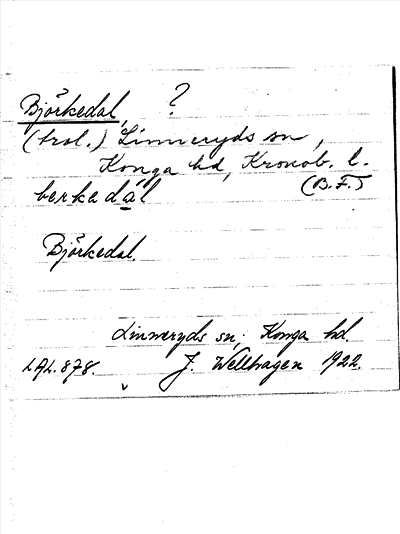 Björkedal, ?
(trol.) Linneryds sn,
Konga hd, Kronob. l.
(B.F.)
berkadal
Björkedal.
Linneryds sn; Konga hd.
LAL. 878. J. Wellhagen 1922.